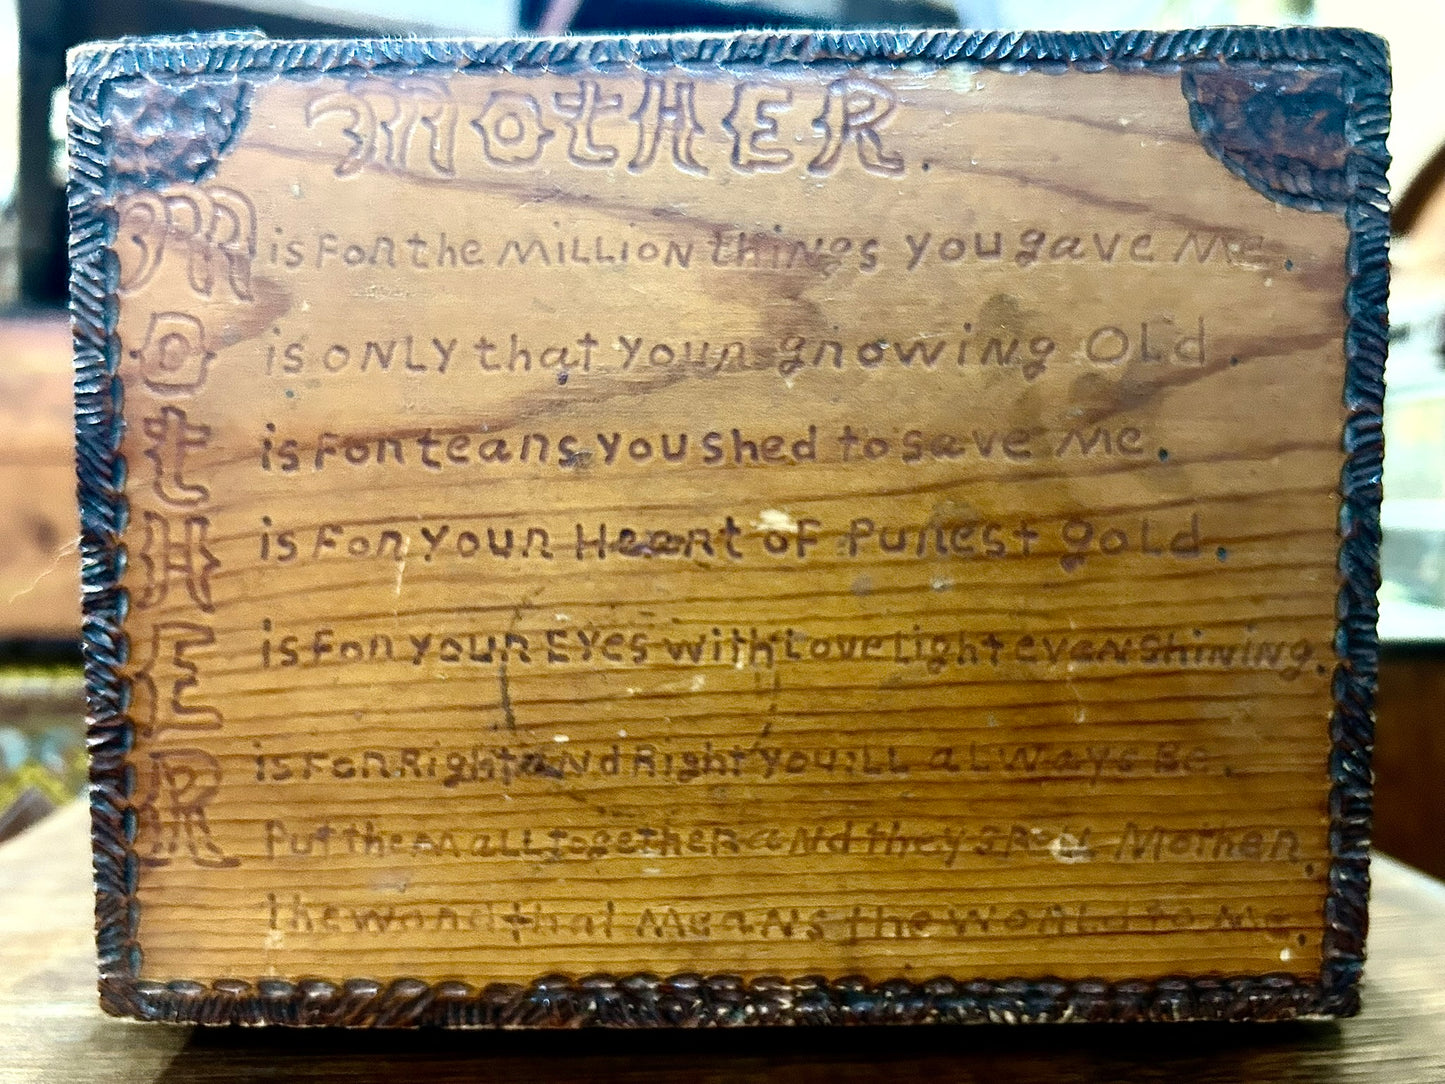 MOtHER.
M is For the MILLION things you gave Me.
O is ONLY that your growing Old.
t is For tears you shed to save Me.
H is For your Heart of Purest gold.
E is For your EYes with Love Light ever shining.
R is For Right aNd Right you'LL aLways Be.
Put them aLL togetheR aNd they sPeLL Mother,
the word that MeaNs the WoRLd to Me.